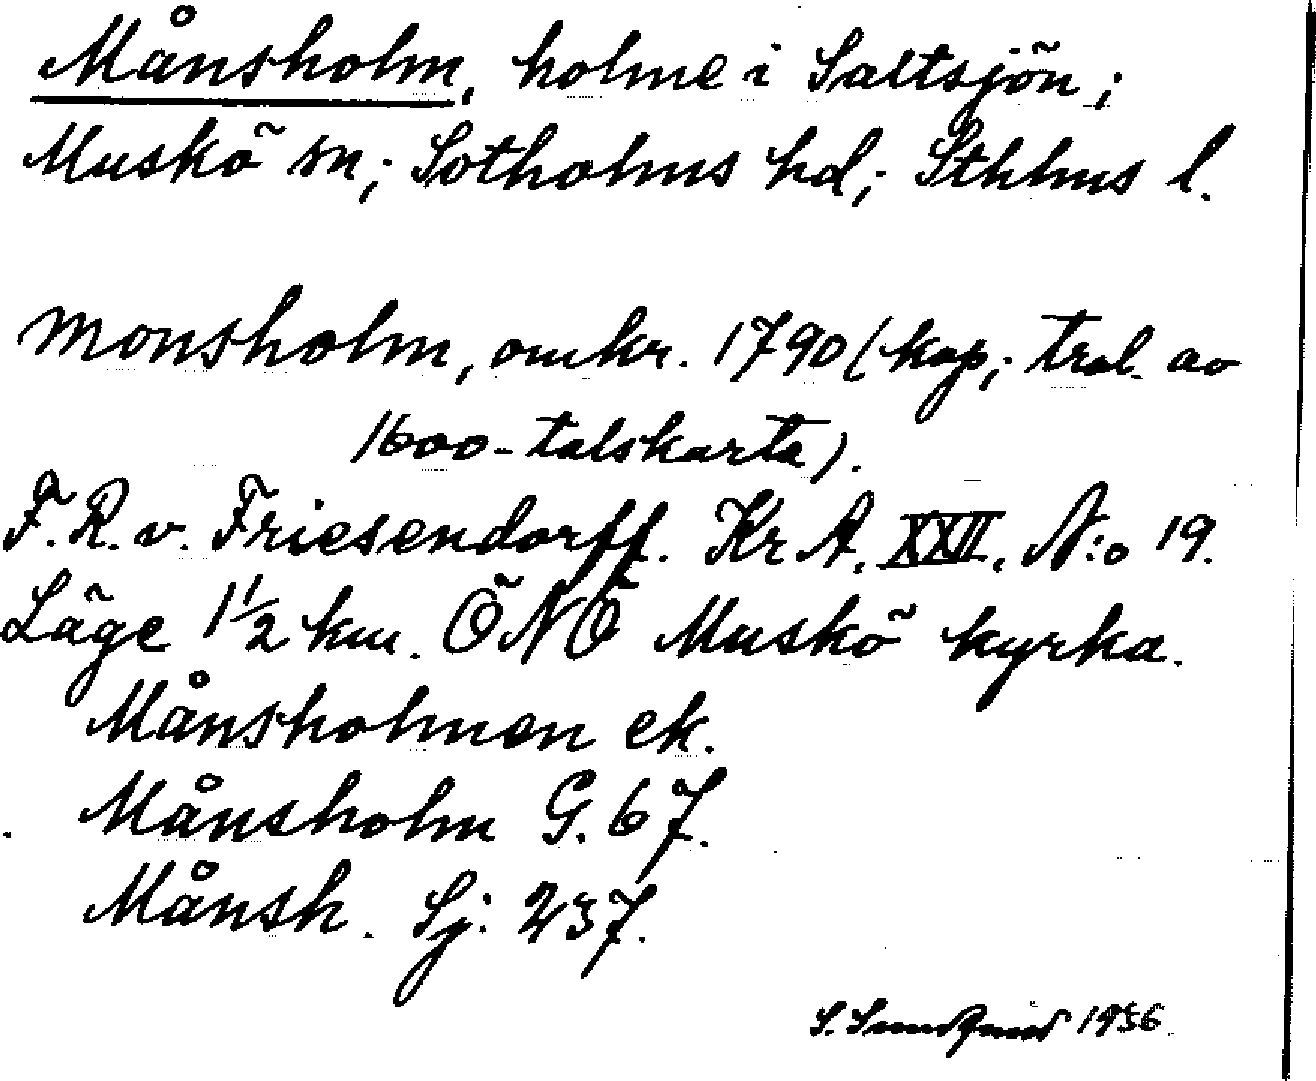 Månsholm, holme i Saltsjön;
Muskö sn; Sotholms hd; Sthlms l.
Monsholm, omkr. 1790 (kop; trol. av
1600-talskarta).
F. R. v. Friesendorff. Kr A. XXII. N:o 19.
Läge 1 1/2 km. ÖNÖ Muskö kyrka.
Månsholmen ek.
Månsholm G. 67.
Månsh. Sj: 237.
S. Sundqvist 1956